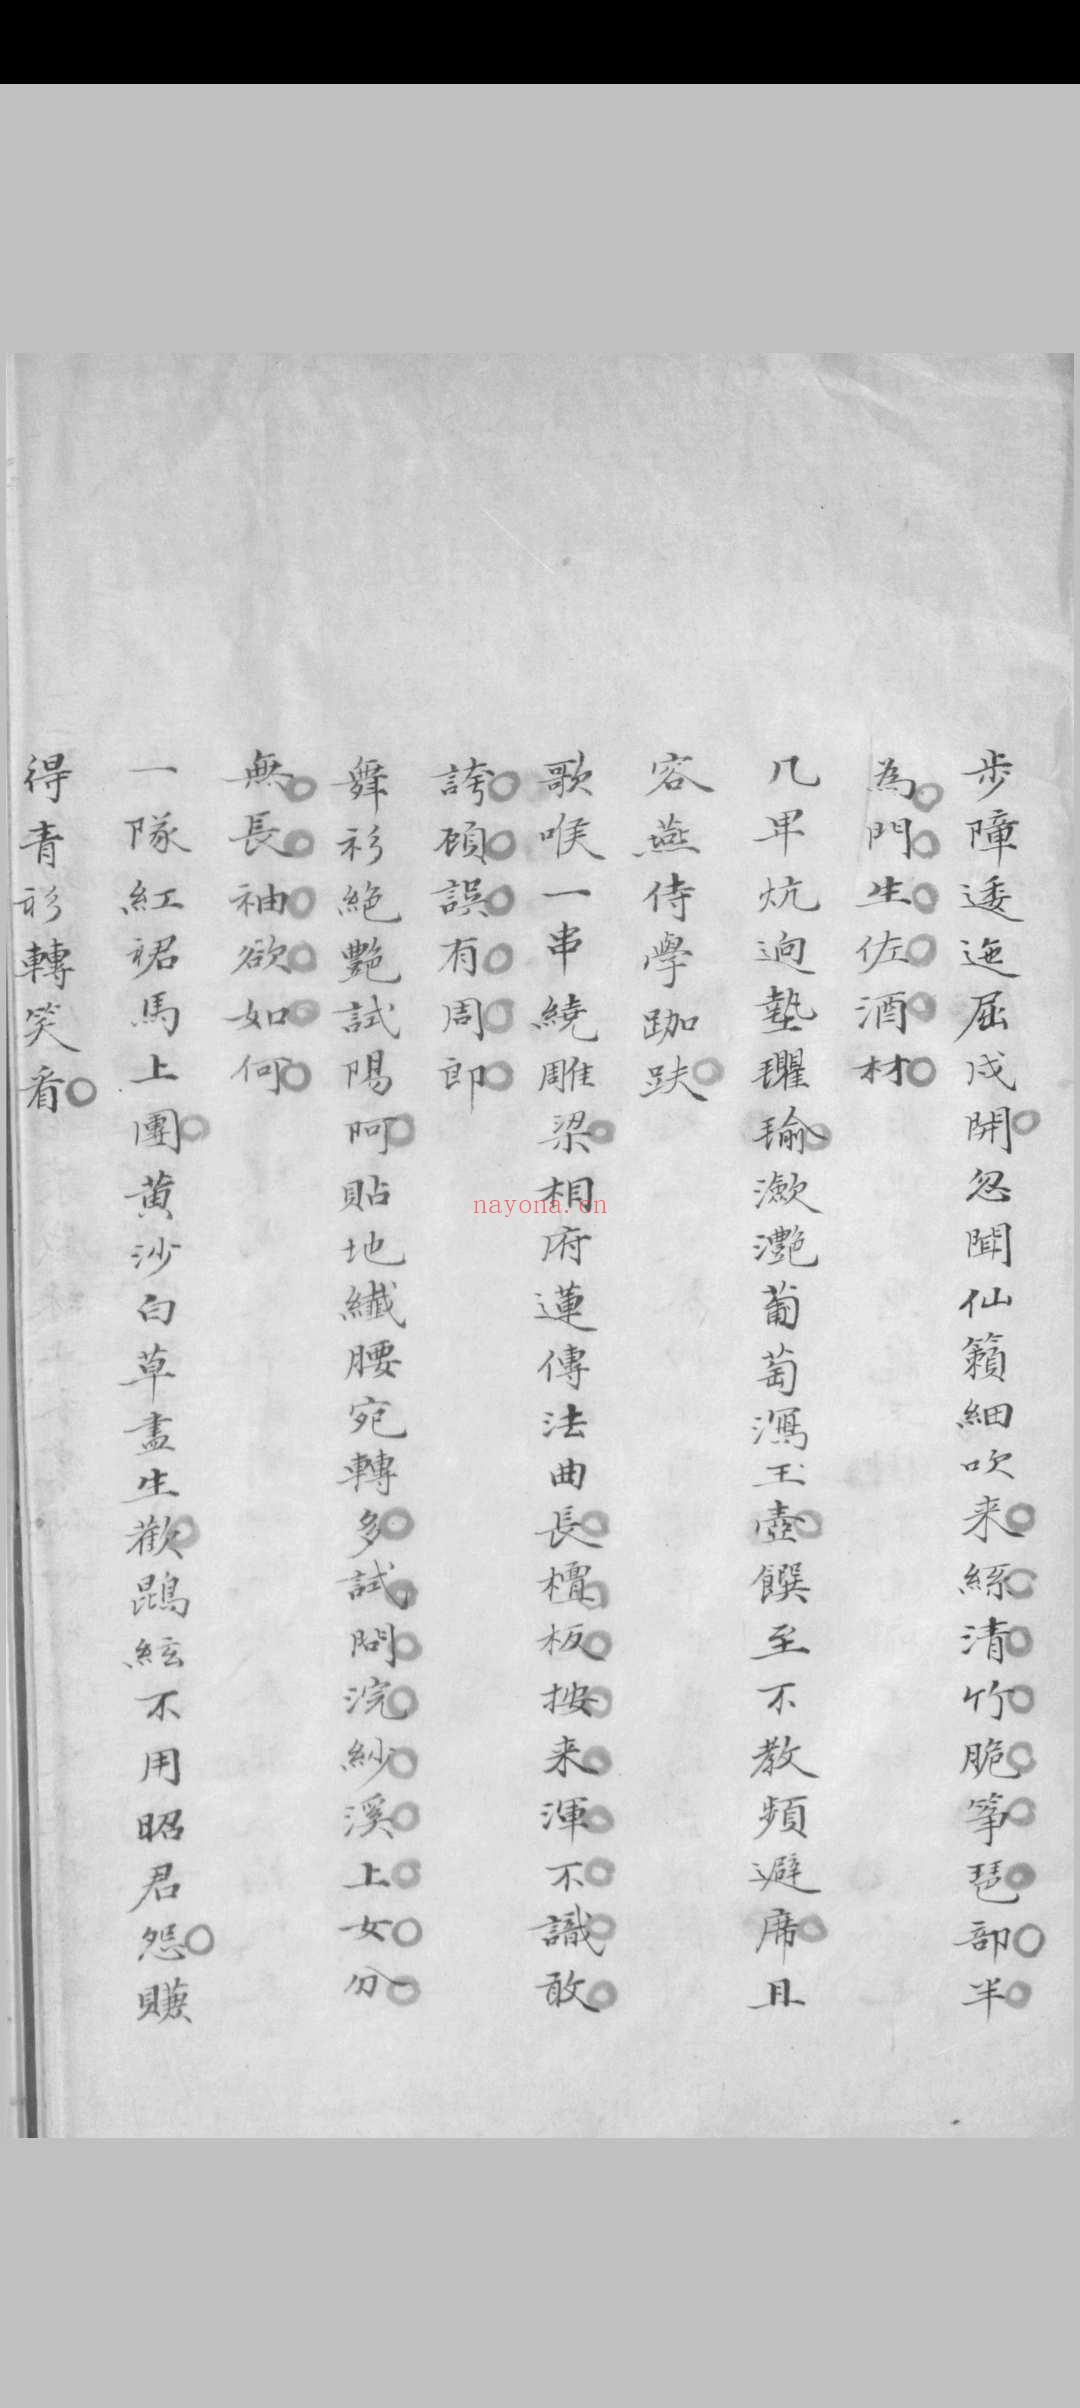 步障逶迤屈戍開忽聞仙籟細吹来絲清竹脆筝琶部半
為門生佐酒材
几平炕逈墊氍毹瀲灧葡萄瀉玉壺饌至不教頻避席且
容燕侍學跏趺
歌喉一串繞雕梁相府蓮傳法曲長檀板按来渾不識敢
誇顧誤有周郎
舞衫絶艷試陽阿貼地纖腰宛轉多試問浣紗溪上女分
無長袖欲如何
一隊紅裙馬上團黄沙白草盡生歡鵾絃不用昭君怨賺
得青衫轉笑看
nayona.cn